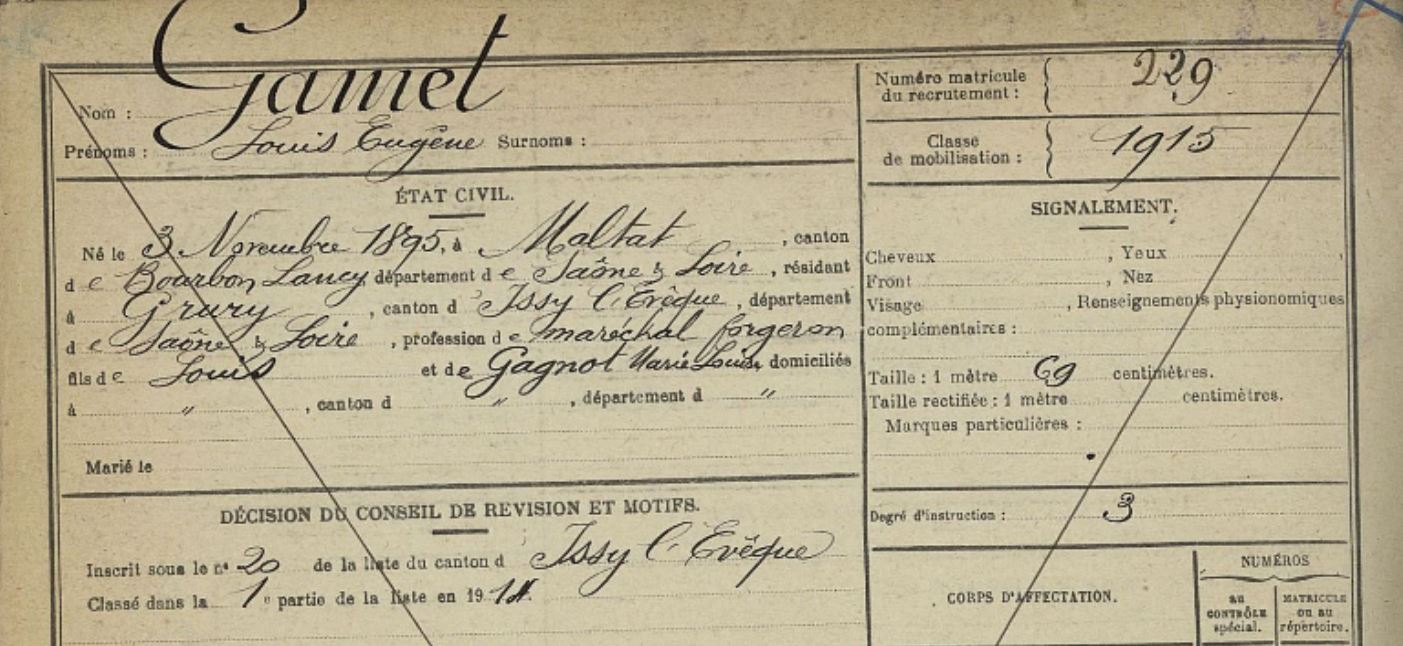 Nom : Gamet
Prénoms : Louis Eugène Surnoms :
ÉTAT CIVIL.
Né le 3 Novembre 1895, à Maltat , canton
d e Bourbon Lancy département d e Saône & Loire , résidant
à Grury , canton d Issy l'Evêque , département
d e Saône & Loire , profession d e maréchal forgeron
fils de Louis et de Gagnot Marie Louise domiciliés
à " , canton d " , département d "
Marié le
DÉCISION DU CONSEIL DE REVISION ET MOTIFS.
Inscrit sous le n° 20 de la liste du canton d Issy l'Evêque
Classé dans la 1e partie de la liste en 1914.
Numéro matricule
du recrutement : 229
Classe
de mobilisation : 1915
SIGNALEMENT.
Cheveux , Yeux ,
Front , Nez
Visage , Renseignements physionomiques
complémentaires :
Taille : 1 mètre 69 centimètres.
Taille rectifiée : 1 mètre centimètres.
Marques particulières :
Degré d'instruction : 3
CORPS D'AFFECTATION.
NUMÉROS
au
CONTRÔLE
spécial.
MATRICULE
ou au
répertoire.